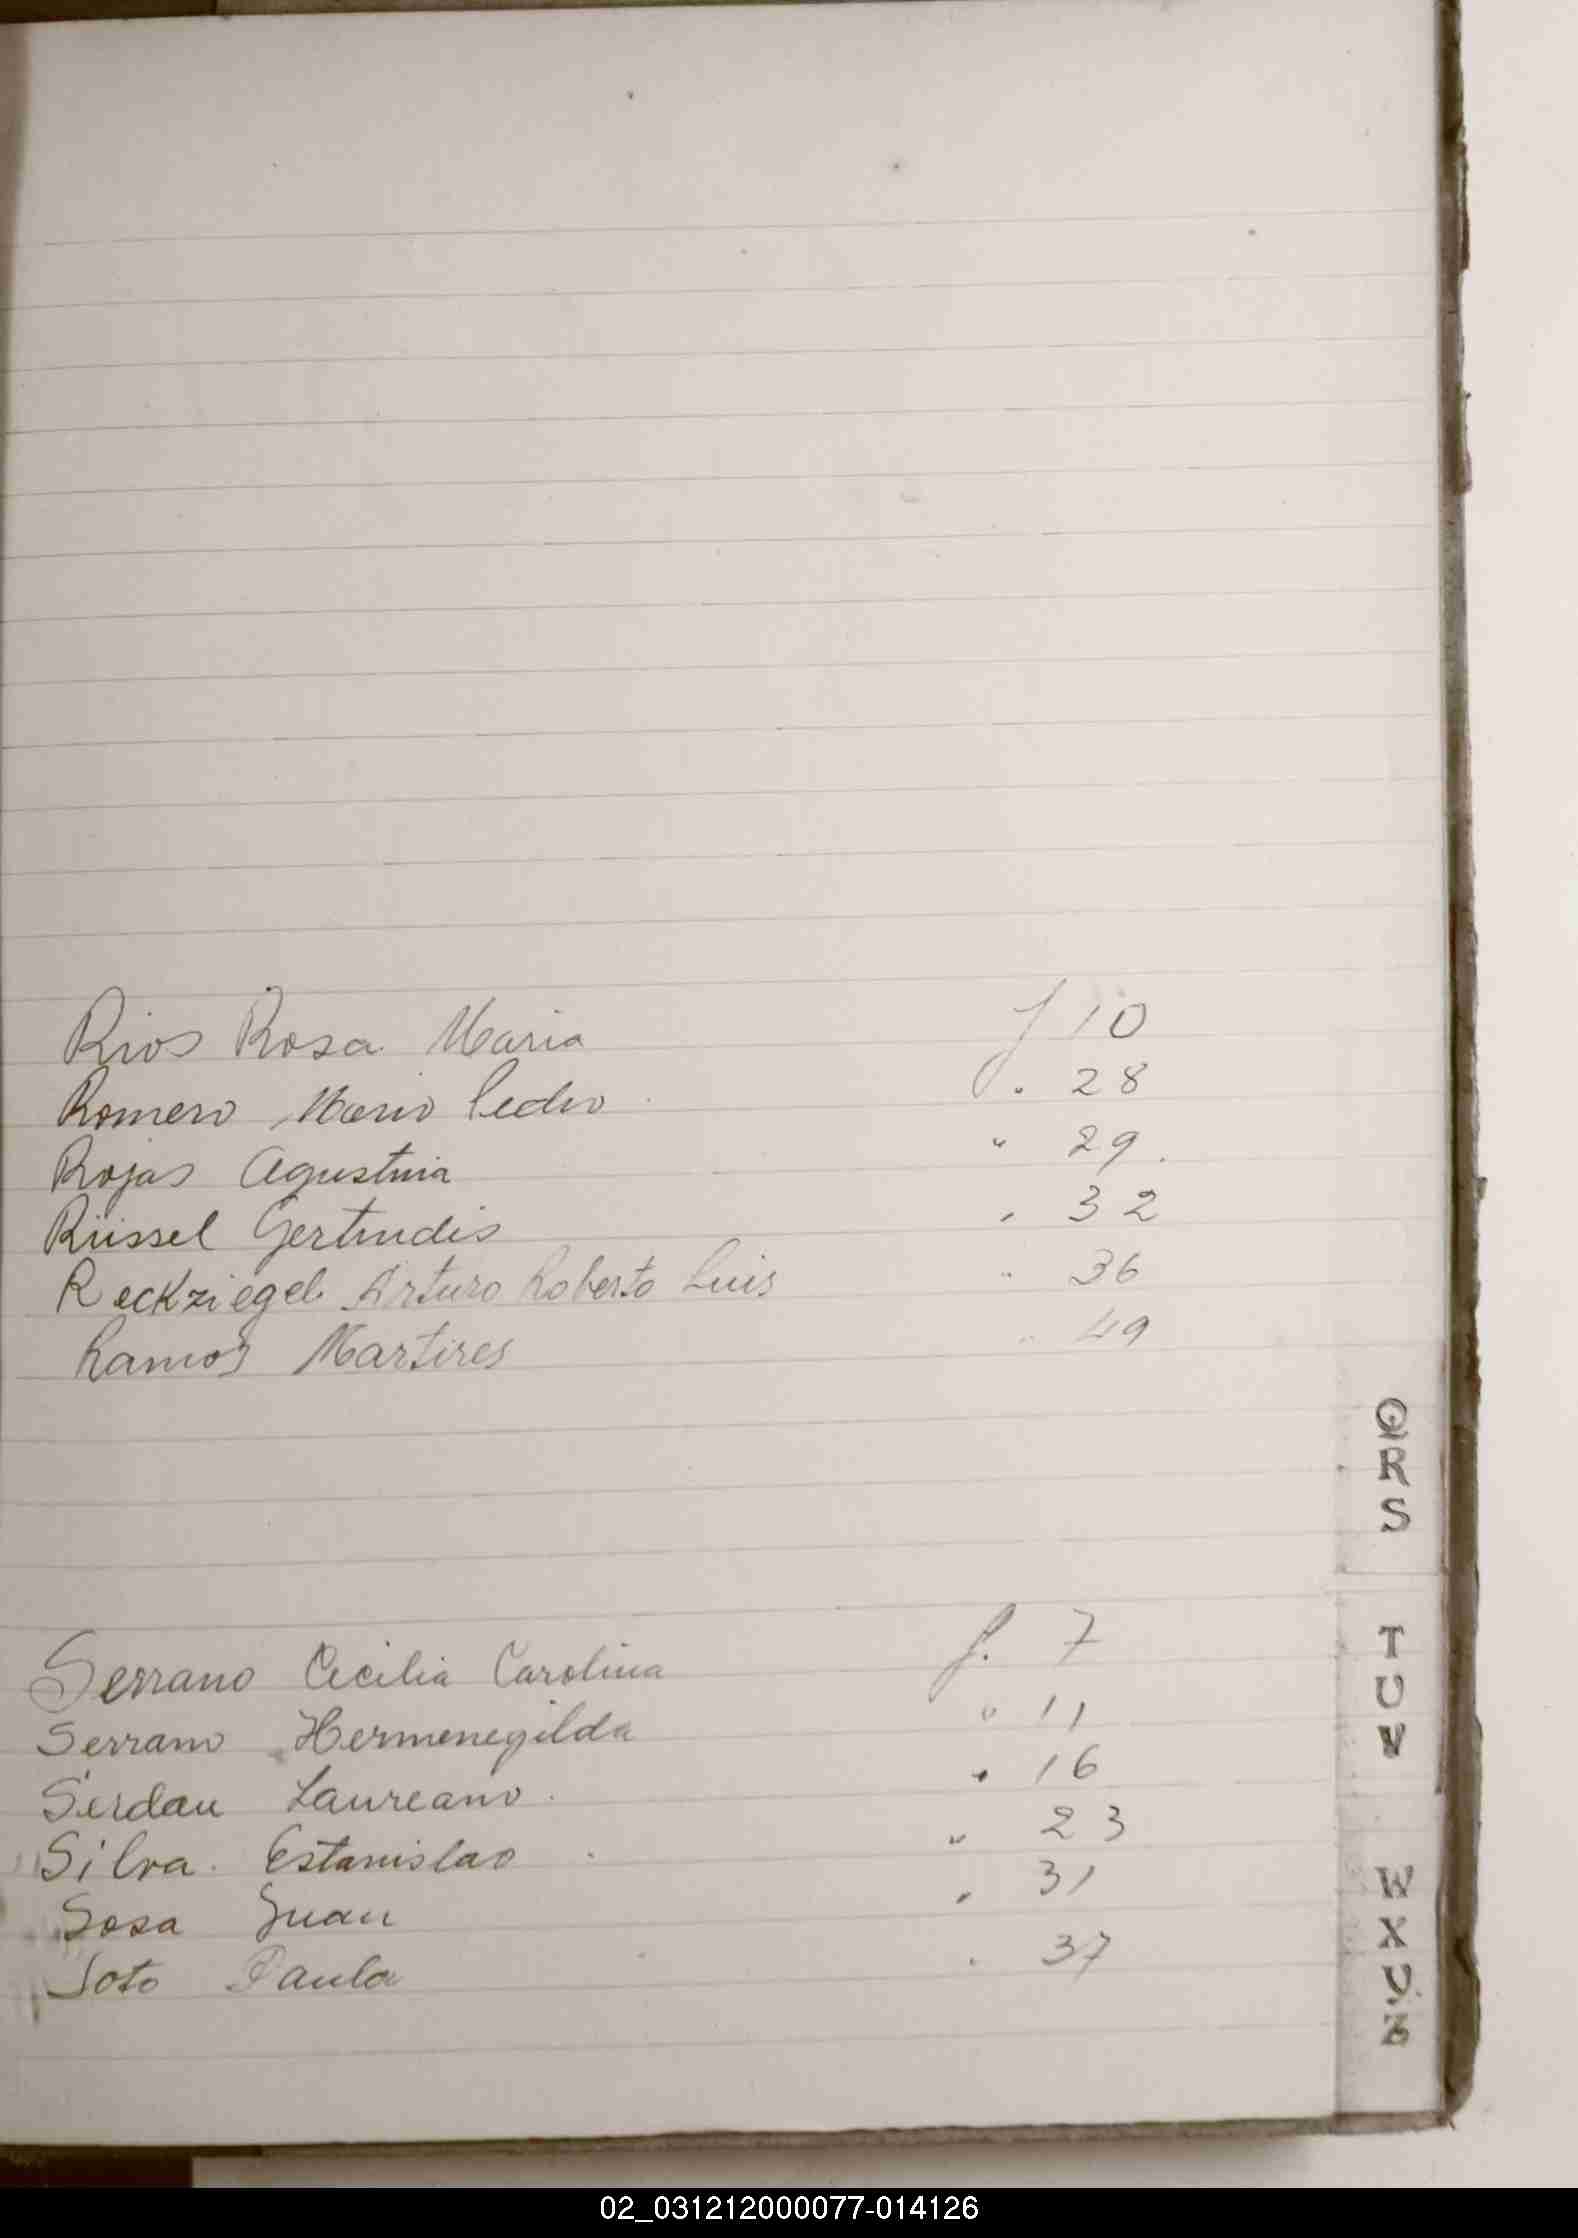 Rios Rosa Maria f 10
Romero Mario Pedro . 28
Rojas Agustina " 29.
Rüssel Gertrudis , 32
Reckziegel Arturo Roberto Luis " 36
Ramos Martires " 49
Q
R
S
Serrano Cecilia Carolina f. 7
Serrano Hermenegilda " 11
Serdan Laureano . " 16
Silva. Estanislao . " 23
Sosa Juan , 31
Soto Paula . 37
T
U
V
W
X
Y
Z
02_031212000077-014126